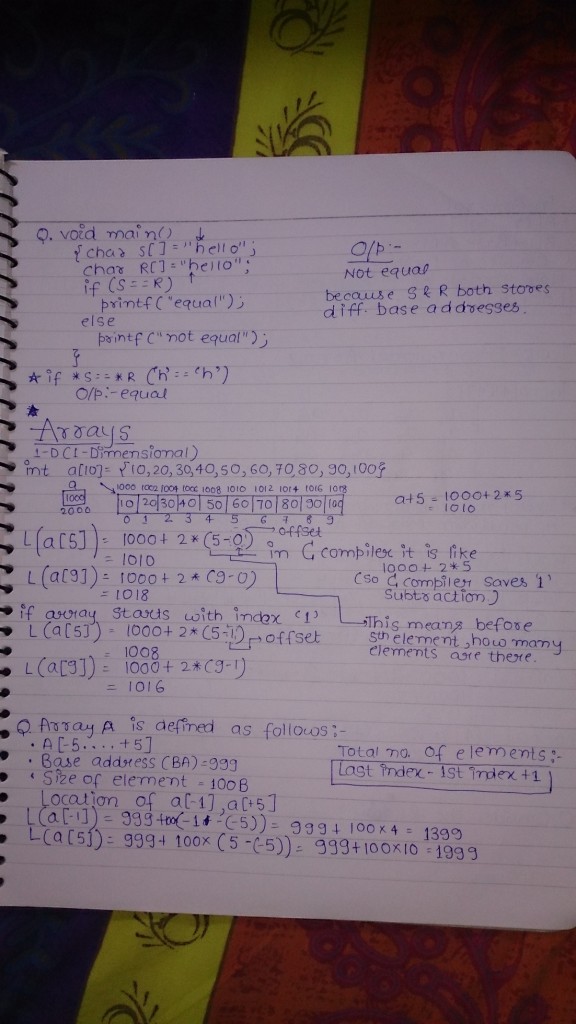 Q. void main()
{ char S[] = "hello";
char R[] = "hello";
if (S == R)
printf("equal");
else
printf("not equal");
}
O/p:-
Not equal
because S & R both stores
diff. base addresses.
* if *S == *R ('h' == 'h')
O/p:- equal
*
Arrays
1-D (1-Dimensional)
int a[10] = {10,20,30,40,50,60,70,80,90,100}
a
1000
2000
1000 1002 1004 1006 1008 1010 1012 1014 1016 1018
10 20 30 40 50 60 70 80 90 100
0 1 2 3 4 5 6 7 8 9
a+5 = 1000+2*5
= 1010
L(a[5]) = 1000 + 2*(5-0) → offset
= 1010
in C compiler it is like
1000 + 2*5
(so C compiler saves '1'
Subtraction.)
L(a[9]) = 1000 + 2*(9-0)
= 1018
if array starts with index '1'
L(a[5]) = 1000 + 2*(5-1) → offset
= 1008
This means before
5th element, how many
elements are there.
L(a[9]) = 1000 + 2*(9-1)
= 1016
Q Array A is defined as follows:-
• A[-5....+5]
• Base address (BA) = 999
• Size of element = 100B
Location of a[-1], a[+5]
Total no. of elements:-
Last index - 1st index +1
L(a[-1]) = 999+100(-1-(-5)) = 999+100×4 = 1399
L(a[5]) = 999+100×(5-(-5)) = 999+100×10 = 1999